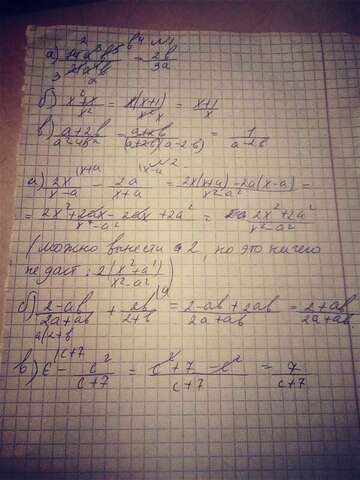 №1
а) 14a³b⁵ / 21a⁴b⁴ = 2b / 3a
б) x²+x / x² = x(x+1) / x² = x+1 / x
в) a+2b / a²-4b² = a+2b / (a+2b)(a-2b) = 1 / a-2b
№2
а) 2x / x-a - 2a / x+a = 2x(x+a)-2a(x-a) / x²-a² =
= 2x²+2ax-2ax+2a² / x²-a² = 2x²+2a² / x²-a²
(можно вынести 2, но это ничего
не даст: 2(x²+a²) / x²-a²)
б) 2-ab / 2a+ab + 2b / 2+b = 2-ab+2ab / 2a+ab = 2+ab / 2a+ab
a(2+b
в) c - c² / c+7 = c²+7-c² / c+7 = 7 / c+7